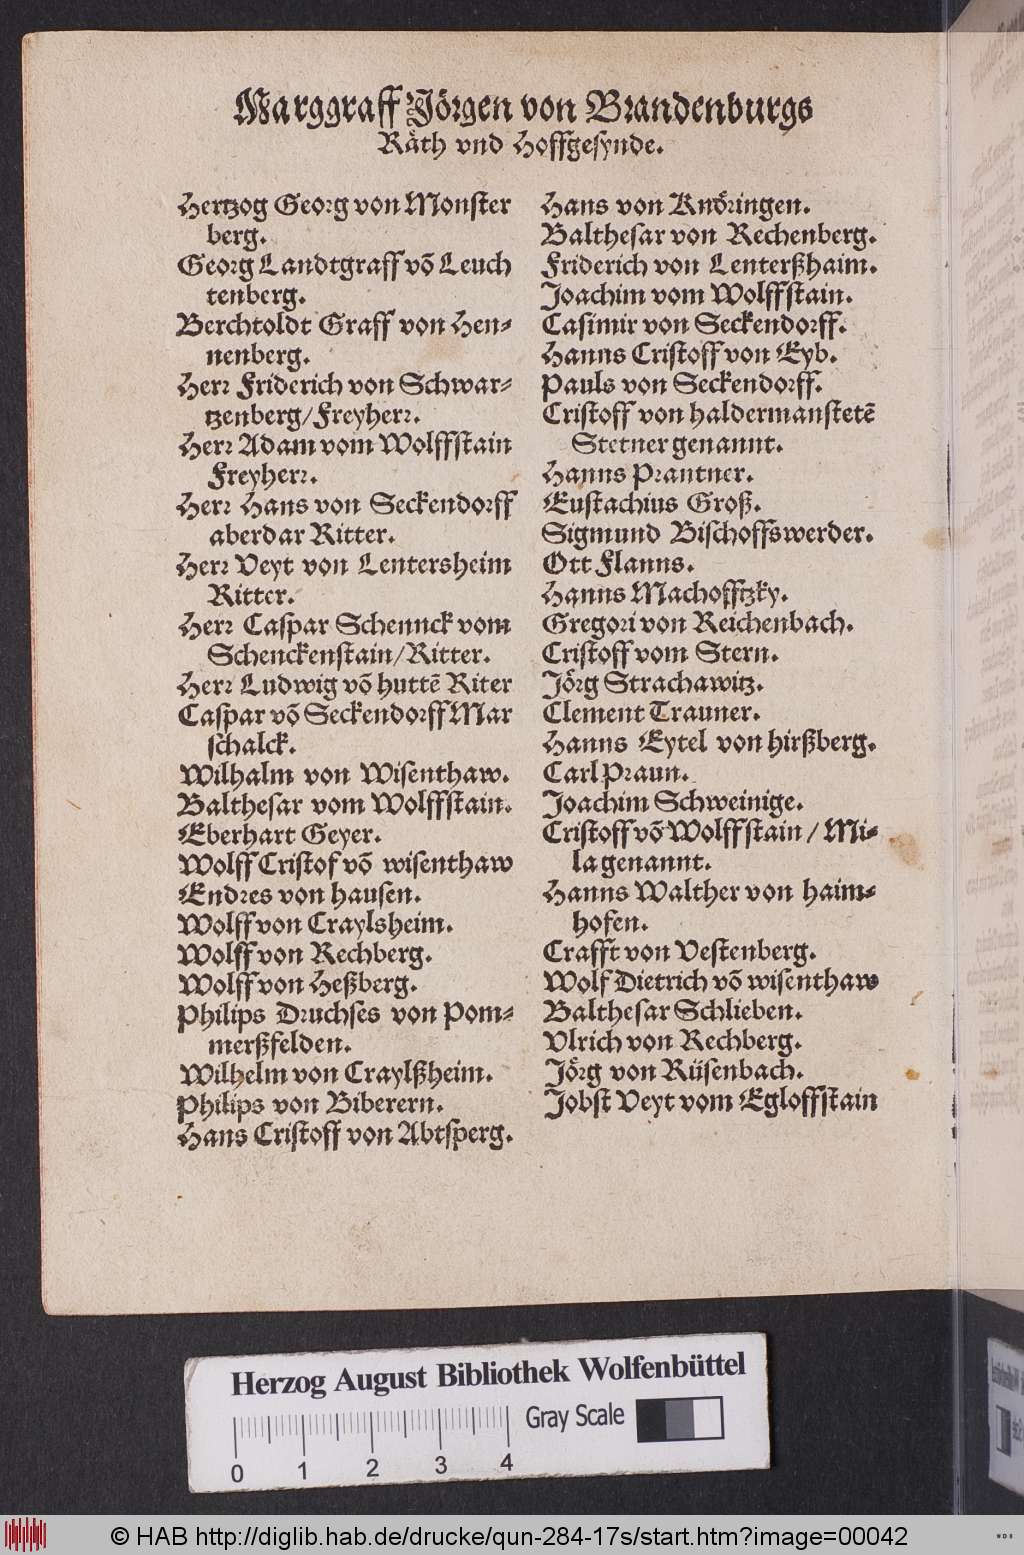 Marggraff Jörgen von Brandenburgs
Räth vnd Hoffgesynde.
Hertzog Georg von Monster
berg.
Georg Landtgraff võ Leuch
tenberg.
Berchtoldt Graff von Hen-
nenberg.
Herr Friderich von Schwar-
tzenberg/Freyherr.
Herr Adam vom Wolffstain
Freyherr.
Herr Hans von Seckendorff
aberdar Ritter.
Herr Veyt von Lentersheim
Ritter.
Herr Caspar Schennck vom
Schenckenstain/Ritter.
Herr Ludwig võ huttẽ Riter
Caspar võ Seckendorff Mar
schalck.
Wilhalm von Wisenthaw.
Balthesar vom Wolffstain.
Eberhart Geyer.
Wolff Cristof võ wisenthaw
Endres von hausen.
Wolff von Craylsheim.
Wolff von Rechberg.
Wolff von Heßberg.
Philips Druchses von Pom-
merßfelden.
Wilhelm von Craylßheim.
Philips von Biberern.
Hans Cristoff von Abtsperg.
Hans von Knöringen.
Balthesar von Rechenberg.
Friderich von Lenterßhaim.
Joachim vom Wolffstain.
Casimir von Seckendorff.
Hanns Cristoff von Eyb.
Pauls von Seckendorff.
Cristoff von haldermanstetẽ
Stetner genannt.
Hanns Prantner.
Eustachius Groß.
Sigmund Bischoffswerder.
Ott Flanns.
Hanns Machofftzky.
Gregori von Reichenbach.
Cristoff vom Stern.
Jörg Strachawitz.
Clement Trauner.
Hanns Eytel von hirßberg.
Carl Praun.
Joachim Schweinige.
Cristoff võ Wolffstain / Mi-
la genannt.
Hanns Walther von haim-
hofen.
Crafft von Vestenberg.
Wolf Dietrich võ wisenthaw
Balthesar Schlieben.
Vlrich von Rechberg.
Jörg von Rüsenbach.
Jobst Veyt vom Egloffstain
Herzog August Bibliothek Wolfenbüttel
Gray Scale
0 1 2 3 4
© HAB http://diglib.hab.de/drucke/qun-284-17s/start.htm?image=00042